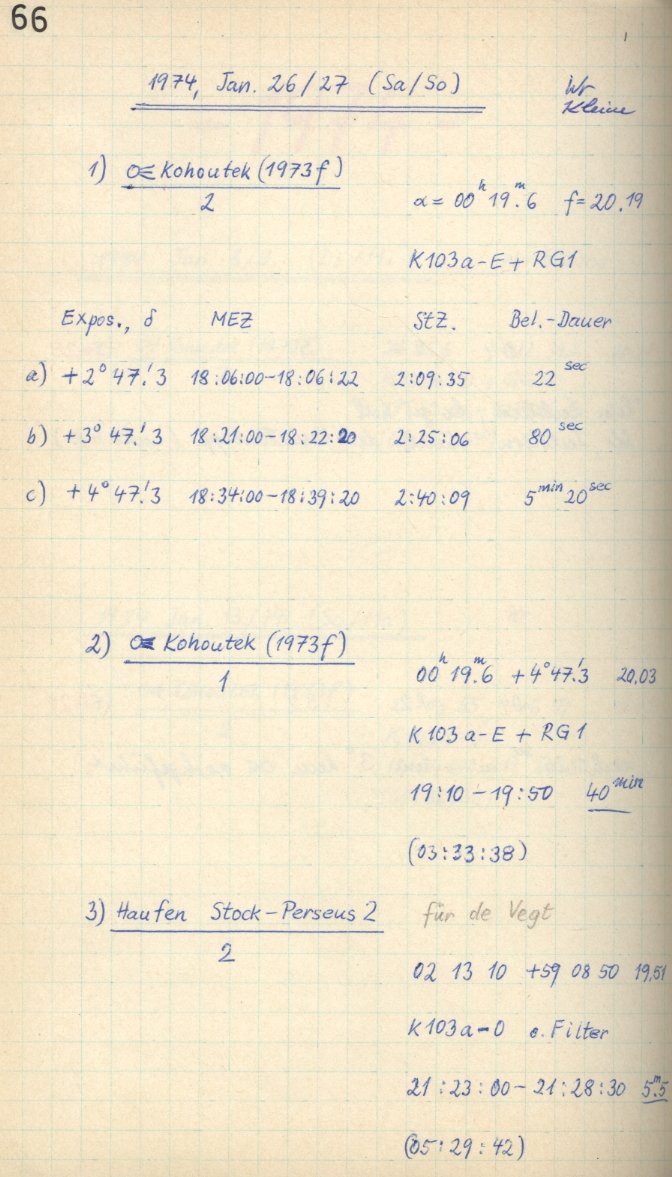 66
1974, Jan. 26/27 (Sa/So) Wr
Kleine
1) ☄ Kohoutek (1973f)
2
α = 00ʰ 19ᵐ.6 f = 20.19
K103a-E + RG1
Expos., δ MEZ StZ. Bel.-Dauer
a) +2° 47.'3 18:06:00-18:06:22 2:09:35 22 sec
b) +3° 47.'3 18:21:00-18:22:20 2:25:06 80 sec
c) +4° 47.'3 18:34:00-18:39:20 2:40:09 5 min 20 sec
2) ☄ Kohoutek (1973f)
1
00ʰ 19ᵐ.6 +4° 47.'3 20,03
K103a-E + RG1
19:10 - 19:50 40 min
(03:33:38)
3) Haufen Stock-Perseus 2 für de Vegt
2
02 13 10 +59 08 50 19,51
K103a-O o. Filter
21:23:00-21:28:30 5ᵐ.5
(05:29:42)